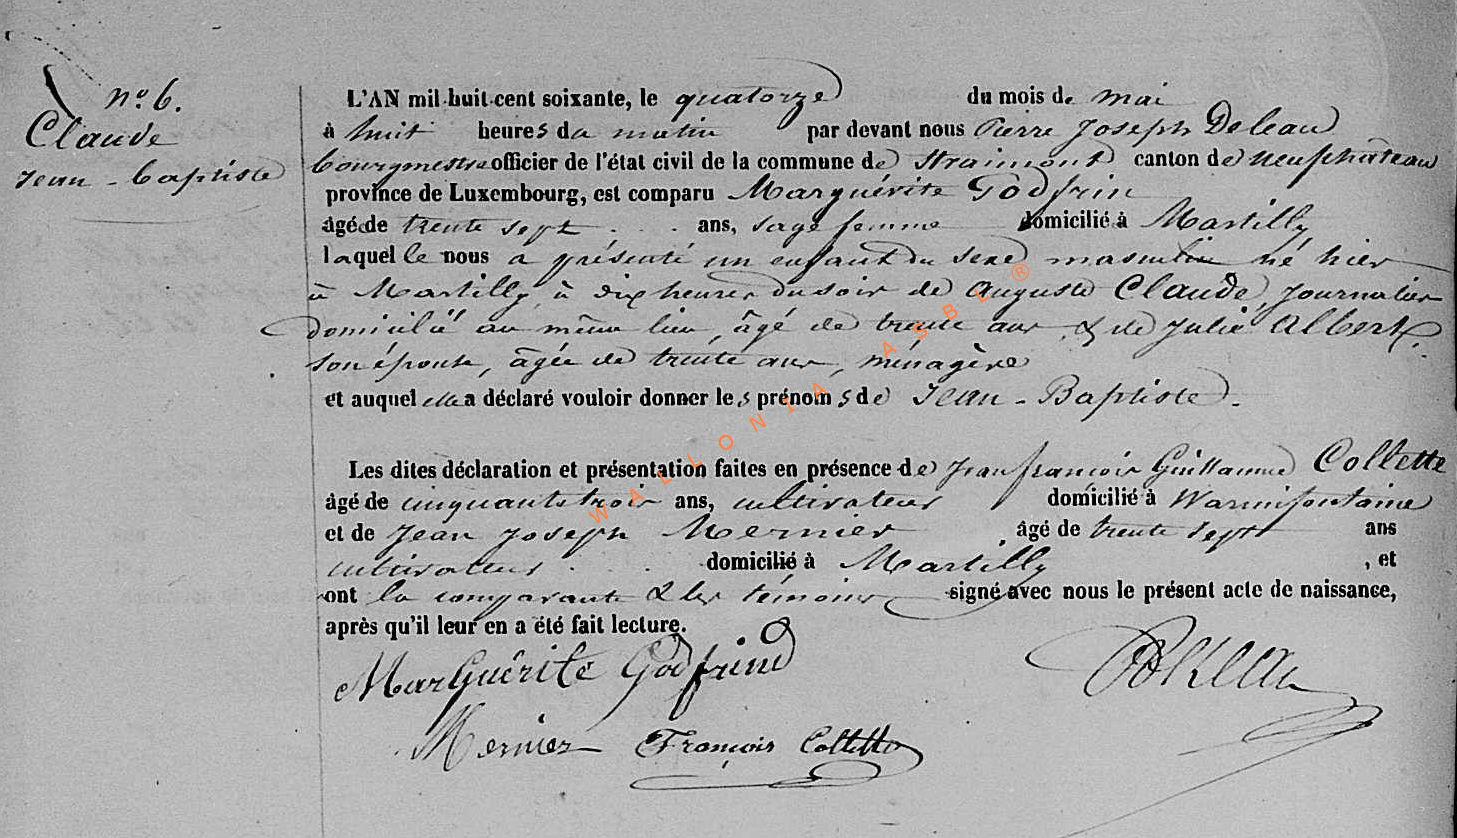 nº 6.
Claude
Jean - baptiste
L'AN mil huit cent soixante, le quatorze du mois de mai
à huit heures du matin par devant nous Pierre Joseph Deleau
bourgmestre officier de l'état civil de la commune de Straimont canton de neufchateau
province de Luxembourg, est comparu Marguérite Godfrin
âgée de trente sept ans, sage femme domicilié à Martilly
laquelle nous a présenté un enfant du sexe masculin né hier
à Martilly, à dix heures du soir de Auguste Claude, journalier
domicilié au même lieu, âgé de trente ans & de Julie Albert,
son épouse, âgée de trente ans, ménagère
et auquel elle a déclaré vouloir donner les prénoms de Jean - Baptiste.
Les dites déclaration et présentation faites en présence de Jean françois Guillaume Collette
âgé de cinquante trois ans, cultivateur domicilié à Warmifontaine
et de Jean Joseph Mernier, âgé de trente sept ans
cultivateur domicilié à Martilly, et
ont la comparante & les témoins signé avec nous le présent acte de naissance,
après qu'il leur en a été fait lecture.
Marguérite Godfrind
Deleau
Mernier François Collette
WALLONIA ASBL ®